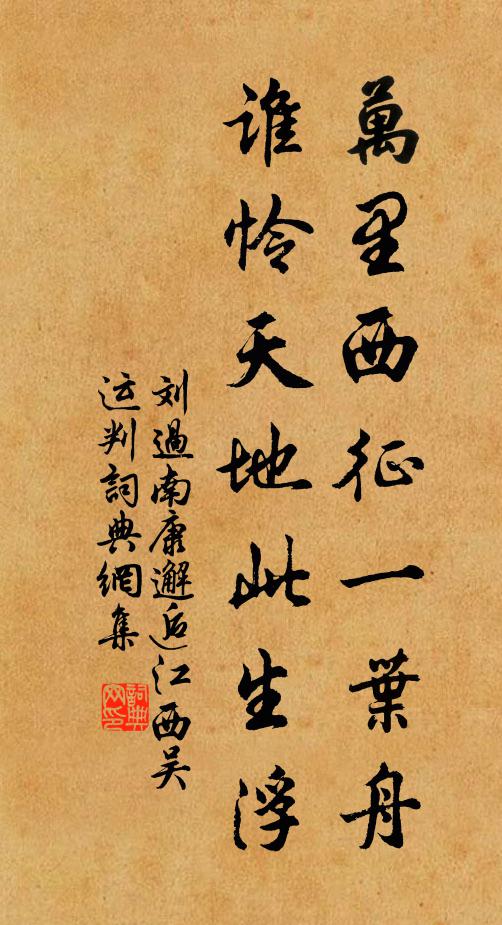 萬里西征一葉舟
谁怜天地此生浮
刘過南康邂逅江西吴
运判詞典網集
詞典网印